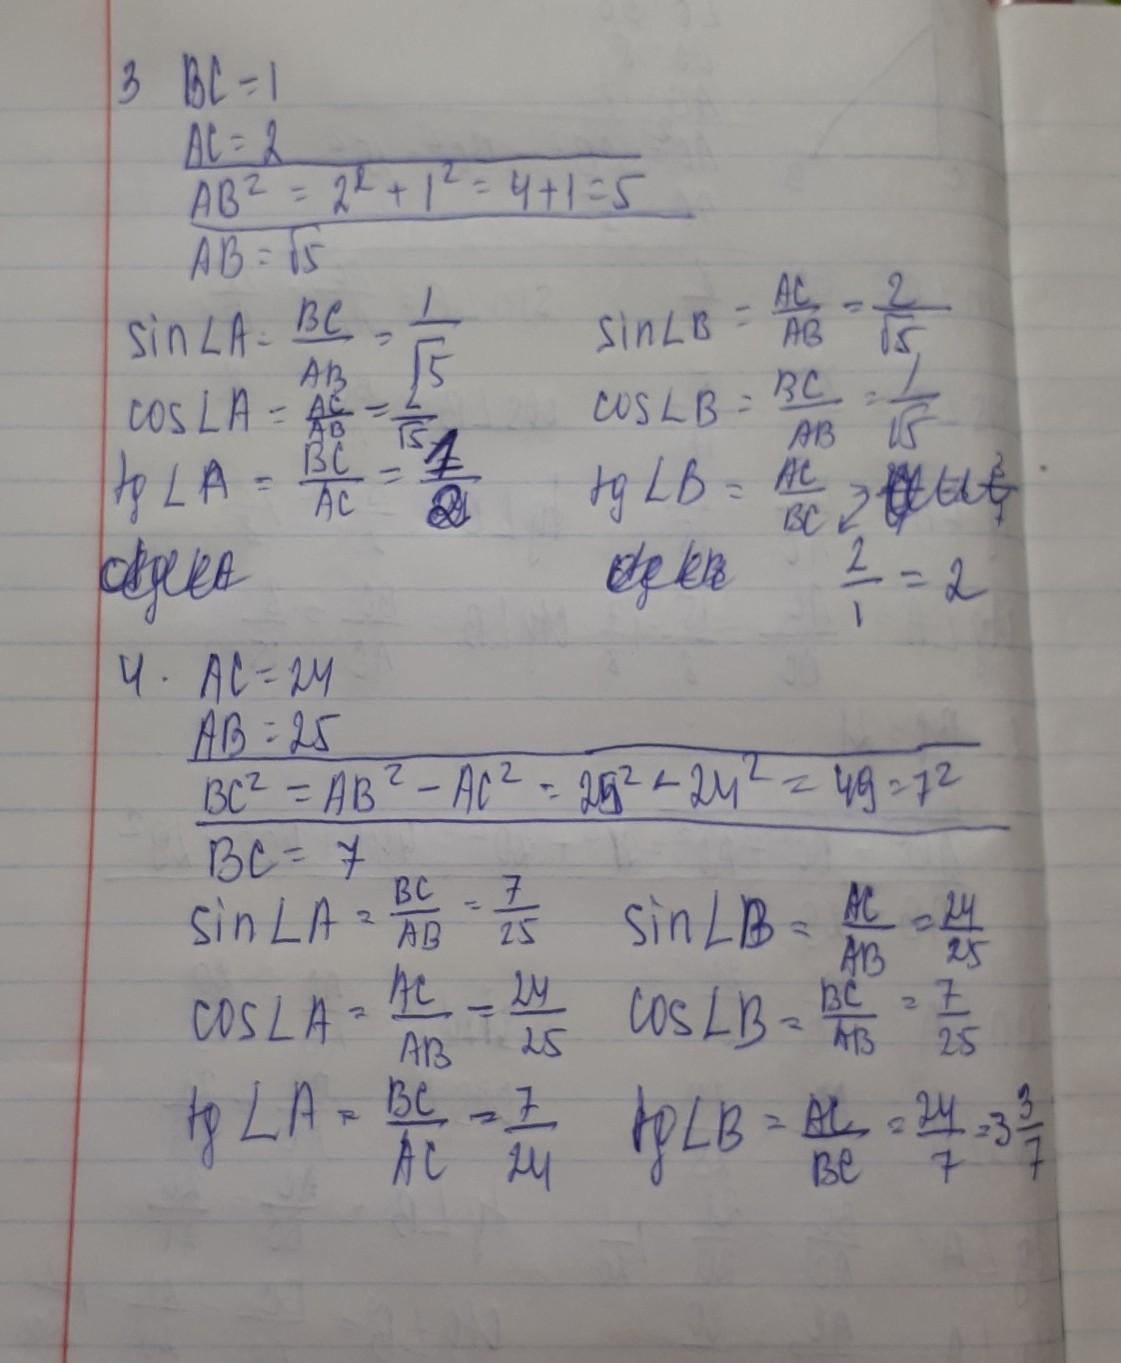 3 BC = 1
AC = 2
AB² = 2² + 1² = 4+1 = 5
AB = √5
sin∠A = BC/AB = 1/√5 sin∠B = AC/AB = 2/√5
cos∠A = AC/AB = 2/√5 cos∠B = BC/AB = 1/√5
tg∠A = BC/AC = 1/2 tg∠B = AC/BC =
2/1 = 2
4. AC = 24
AB = 25
BC² = AB² - AC² = 25² - 24² = 49 = 7²
BC = 7
sin∠A = BC/AB = 7/25 sin∠B = AC/AB = 24/25
cos∠A = AC/AB = 24/25 cos∠B = BC/AB = 7/25
tg∠A = BC/AC = 7/24 tg∠B = AC/BC = 24/7 = 3 3/7